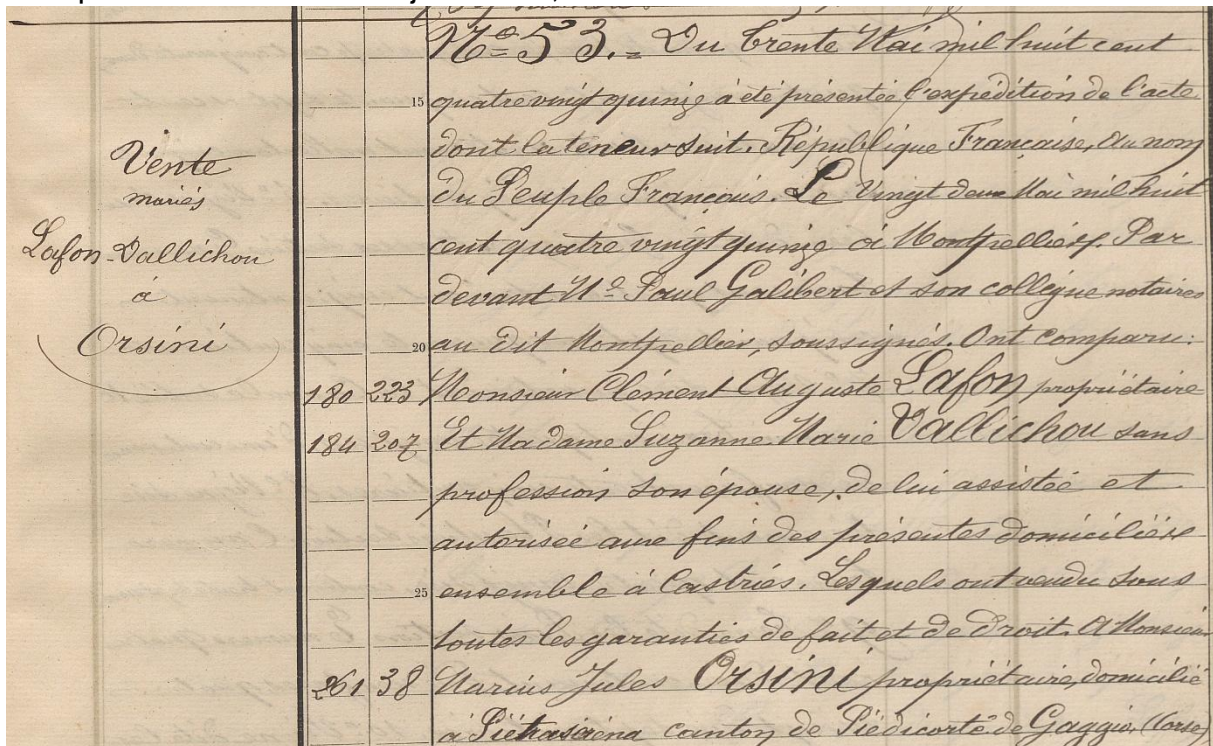 Vente
mariés
Lafon-Vallichou
à
Orsini
Nº 53. = Du trente Mai mil huit cent
15 quatre vingt quinze a été présentée l'expédition de l'acte
dont la teneur suit. République Française, Au nom
du Peuple Français. Le Vingt deux Mai mil huit
cent quatre vingt quinze à Montpellier. Par
devant Mº Paul Galibert et son collègue notaires
20 au dit Montpellier, soussignés. Ont comparu:
180 223 Monsieur Clément Auguste Lafon propriétaire
184 207 Et Madame Suzanne Marie Vallichou sans
profession son épouse, de lui assistée et
autorisée aux fins des présentes domiciliés
25 ensemble à Castries. Lesquels ont vendu sous
toutes les garanties de fait et de droit. A Monsieur
261 38 Marius Jules Orsini propriétaire, domicilié
à canton de Piédicorté de Gaggio (Corse)